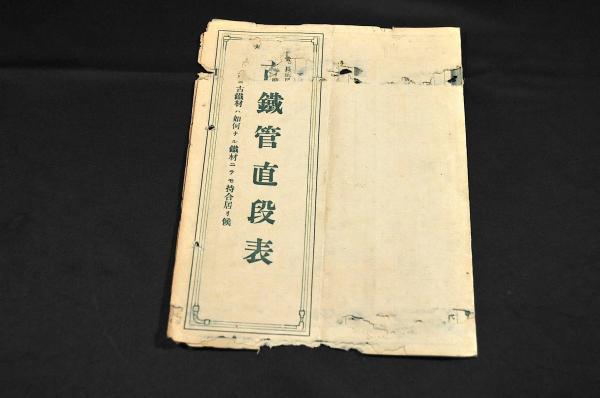 古鐵管直段表
古鐵材ハ如何ナル鐵材ニテモ持合居リ候